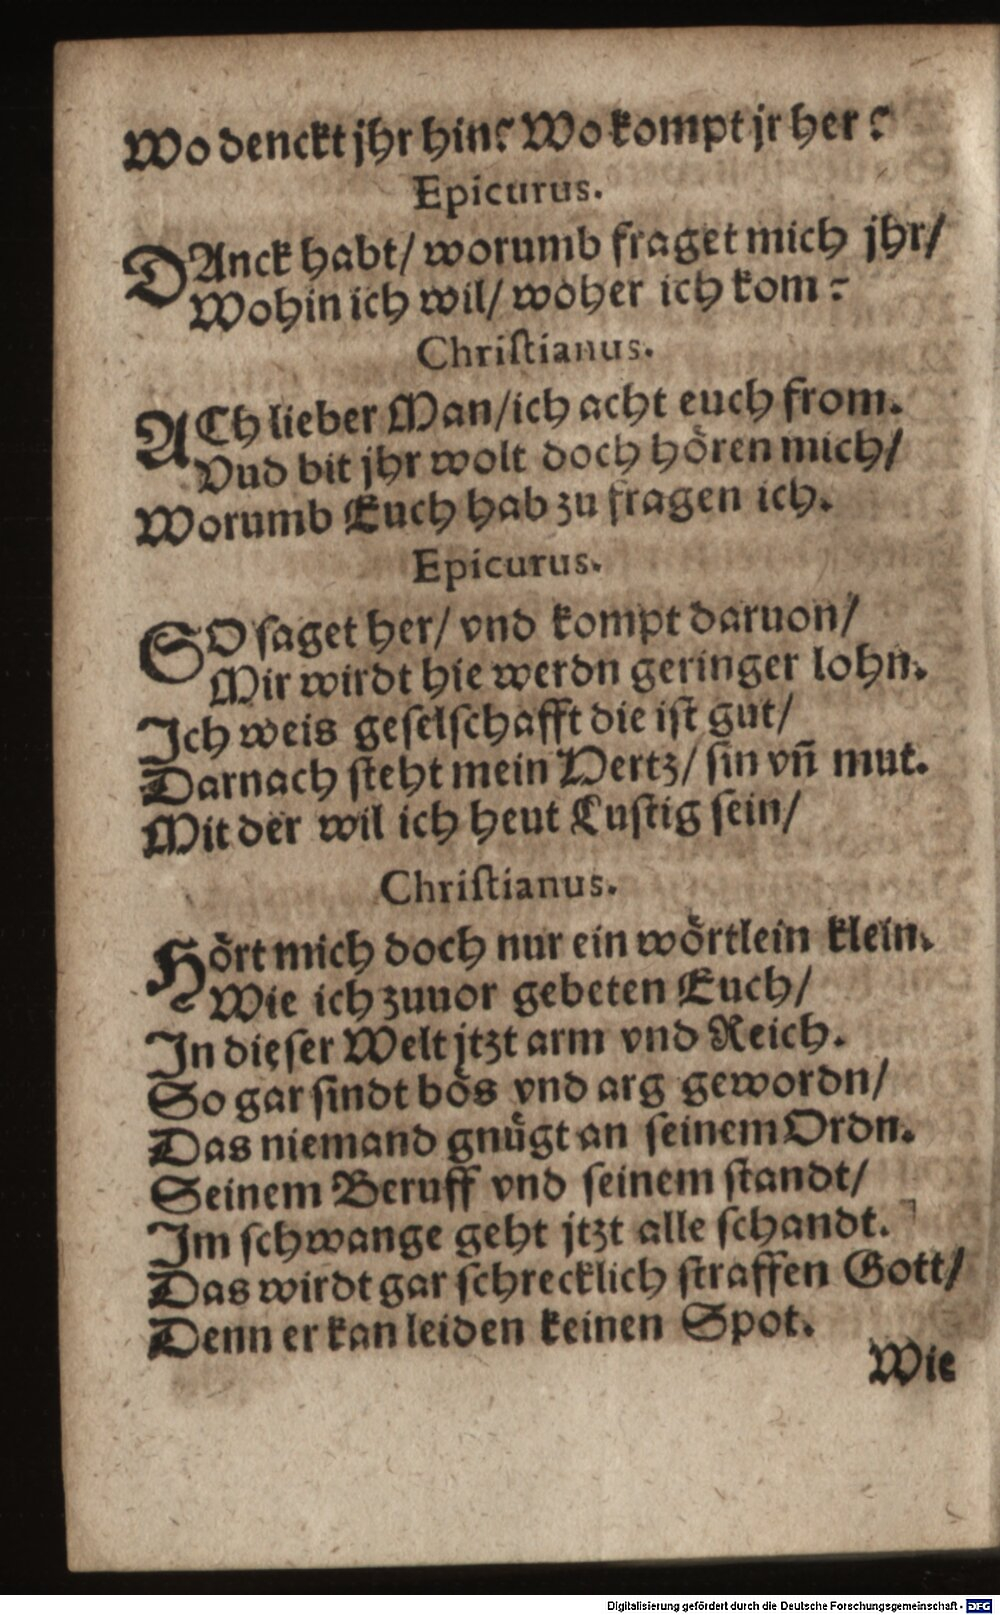 Wo denckt jhr hin? Wo kompt jr her?
Epicurus.
DAnck habt/ worumb fraget mich jhr/
Wohin ich wil/ woher ich kom?
Chriſtianus.
ACh lieber Man/ich acht euch from.
Vud bit jhr wolt doch hoͤren mich/
Worumb Euch hab zu fragen ich.
Epicurus.
SO ſaget her/ vnd kompt daruon/
Mir wirdt hie werdn geringer lohn.
Ich weis geſelſchafft die iſt gut/
Darnach ſteht mein Hertz/ ſin vñ mut.
Mit der wil ich heut Luſtig ſein/
Chriſtianus.
Hoͤrt mich doch nur ein woͤrtlein klein.
Wie ich zuuor gebeten Euch/
In dieſer Welt jtzt arm vnd Reich.
So gar ſindt boͤs vnd arg gewordn/
Das niemand gnuͤgt an ſeinem Ordn.
Seinem Beruff vnd ſeinem ſtandt/
Im ſchwange geht jtzt alle ſchandt.
Das wirdt gar ſchrecklich ſtraffen Gott/
Denn er kan leiden keinen Spot.
Wie
Digitalisierung gefördert durch die Deutsche Forschungsgemeinschaft - DFG